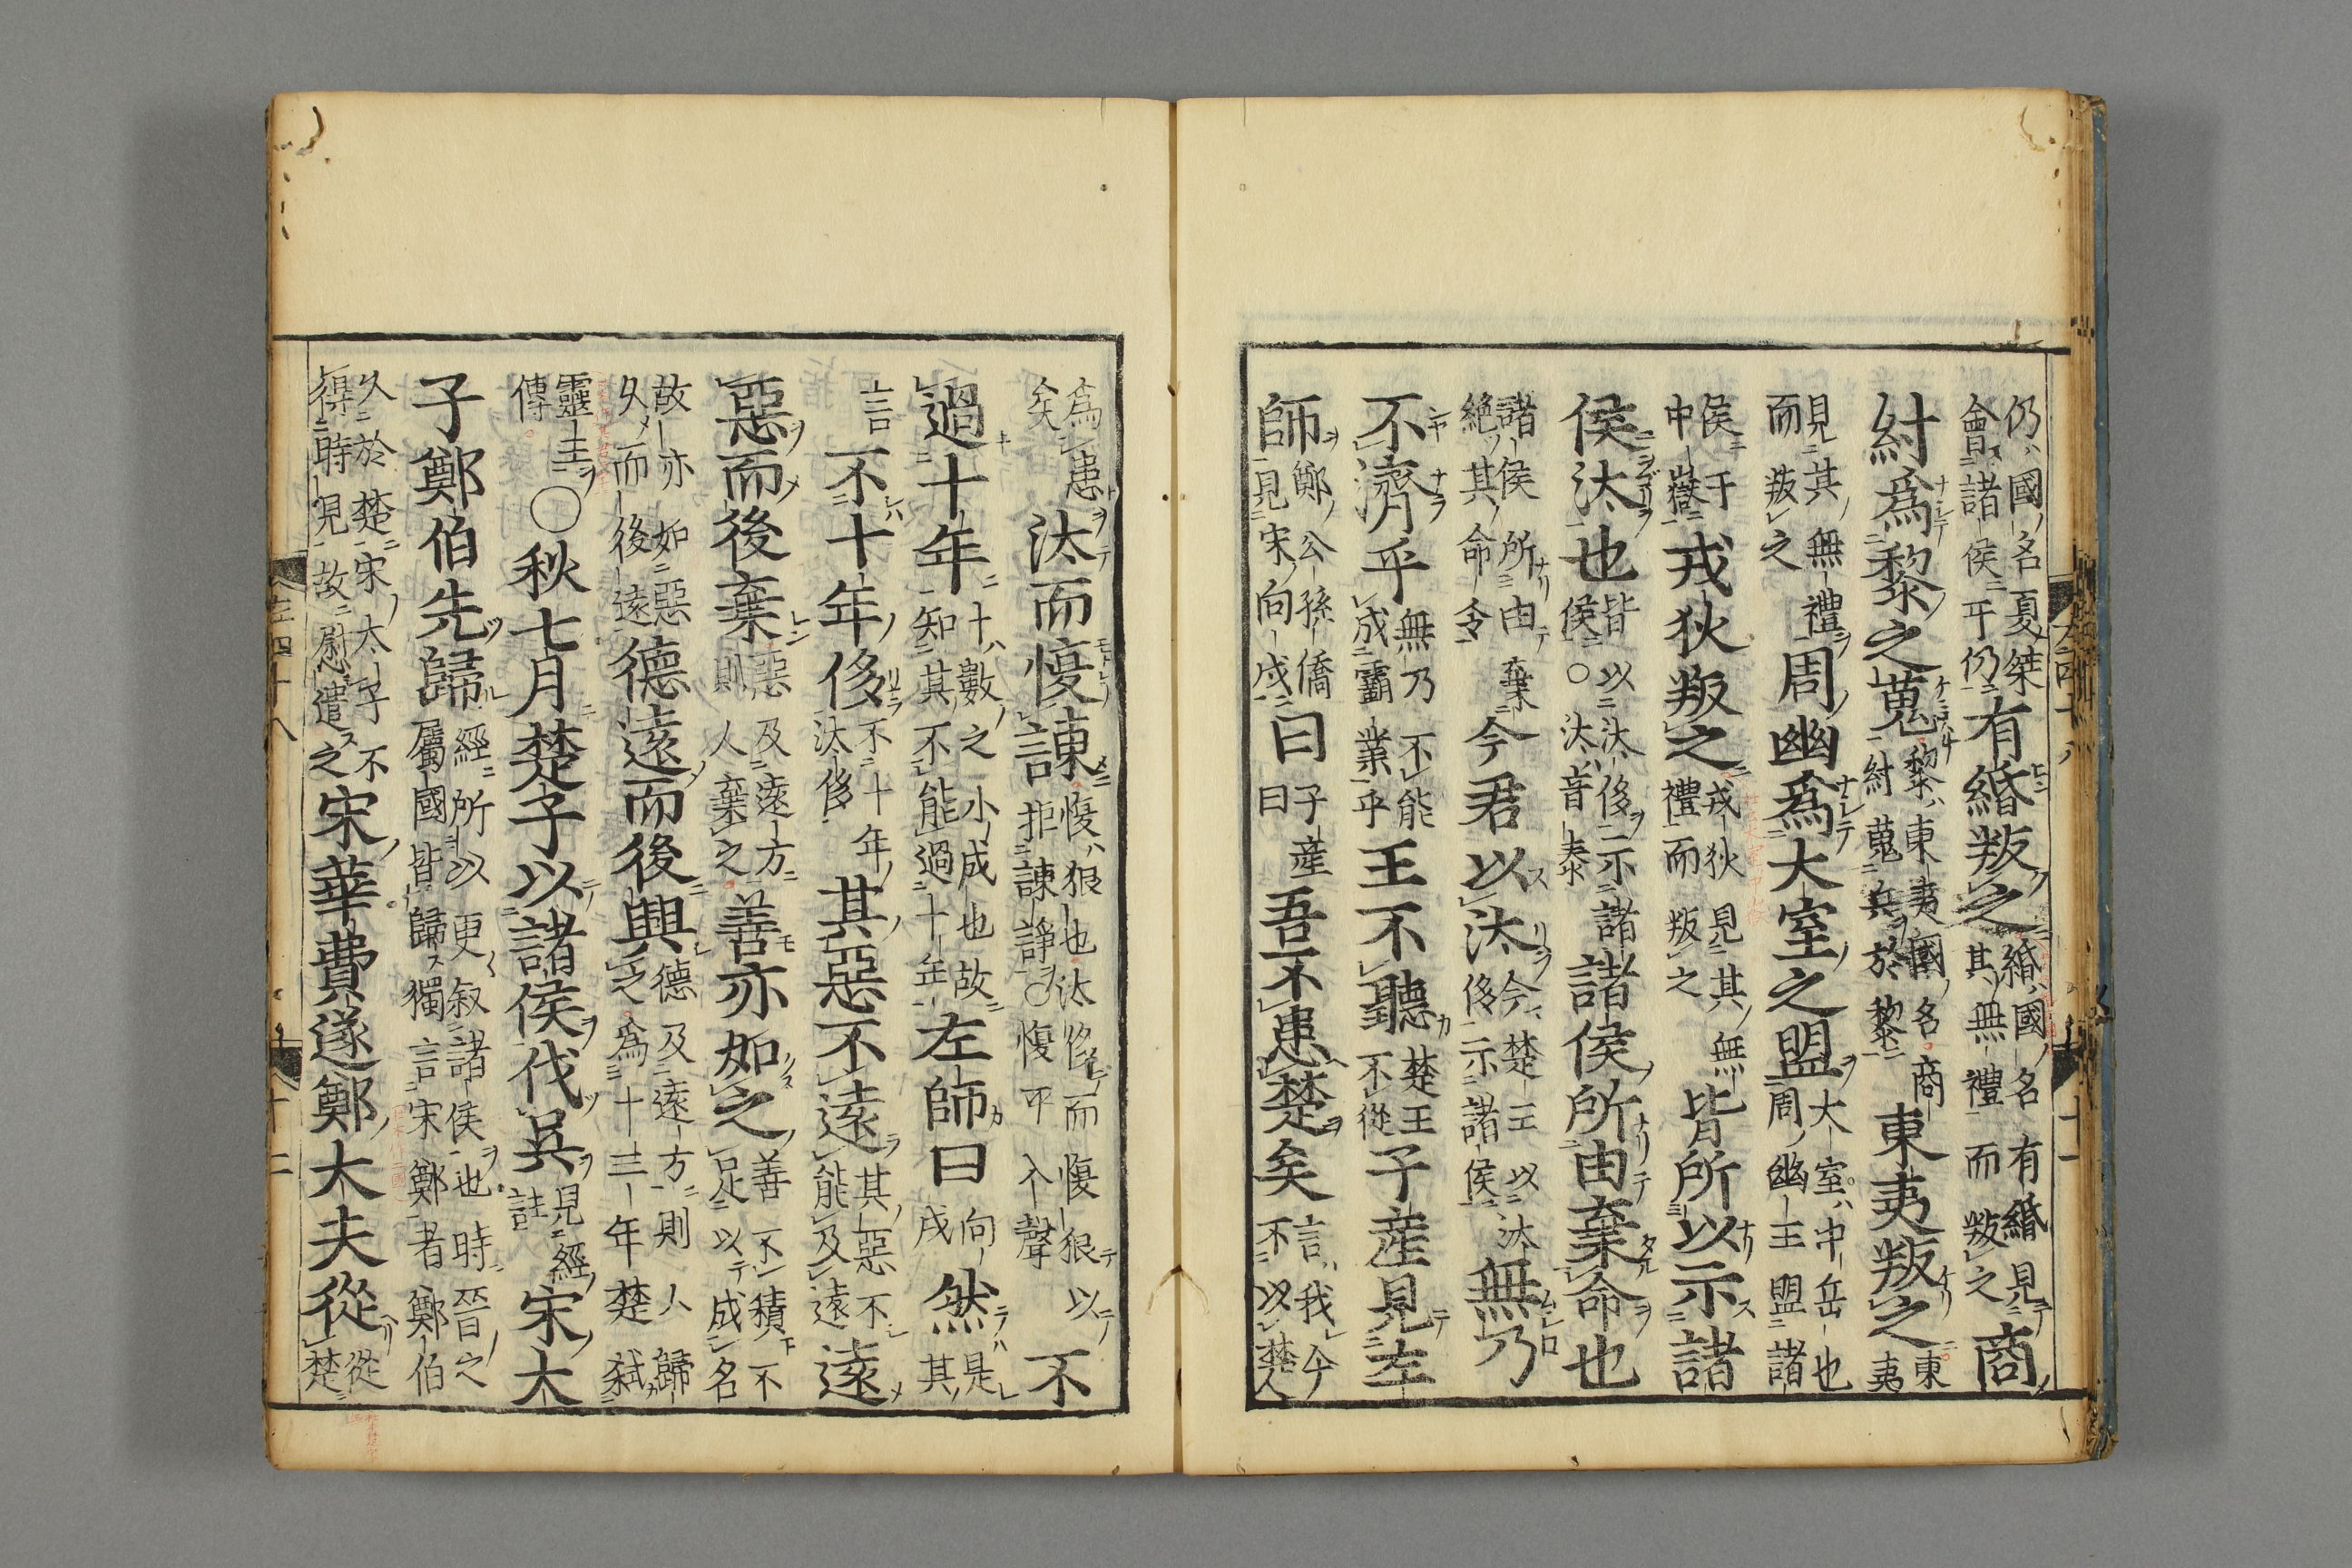 仍國名夏桀
會諸侯于仍
有緡叛之
緡國名有緡見
其無禮而叛之
商
紂爲黎之蒐
黎東夷國名商
紂蒐兵於黎
東夷叛之
東
夷
見其無禮
而叛之
周幽爲大室之盟
大室中岳也
周幽王盟諸
侯于
中嶽
戎狄叛之
戎狄見其無
禮而叛之
皆所以示諸
侯汏也
皆以汏侈示諸
侯○汏音泰
諸侯所由棄命也
諸侯所由棄
絶其命令
今君以汏
今楚王以汏
侈示諸侯
無乃
不濟乎
無乃不能
成霸業乎
王不聽
楚王
不從
子産見左
師
鄭公孫僑
見宋向戌
曰
子産
曰
吾不患楚矣
言我今
不以楚人
爲患
矣
汏而愎諫
愎狠也汏侈而愎狠以
拒諫諍○愎平入聲
不
過十年
十數之小成也故
知其不能過十年
左師曰
向
戌
然
是
其
言
不十年侈
不十年
汏侈
其惡不遠
其惡不
能及遠
遠
惡而後棄
惡及遠方
則人棄之
善亦如之
善不積不
足以成名
故亦如惡
久而後遠
德遠而後興
德及遠方則人歸
之爲十三年楚弑
靈王
傳
○秋七月楚子以諸侯伐吳
見經
註
宋大
子鄭伯先歸
經所以更叙諸侯也時晉之
屬國皆歸獨言宋鄭者鄭伯
久於楚宋太子不
得時見故慰遣之
宋華費遂鄭大夫從
從
楚